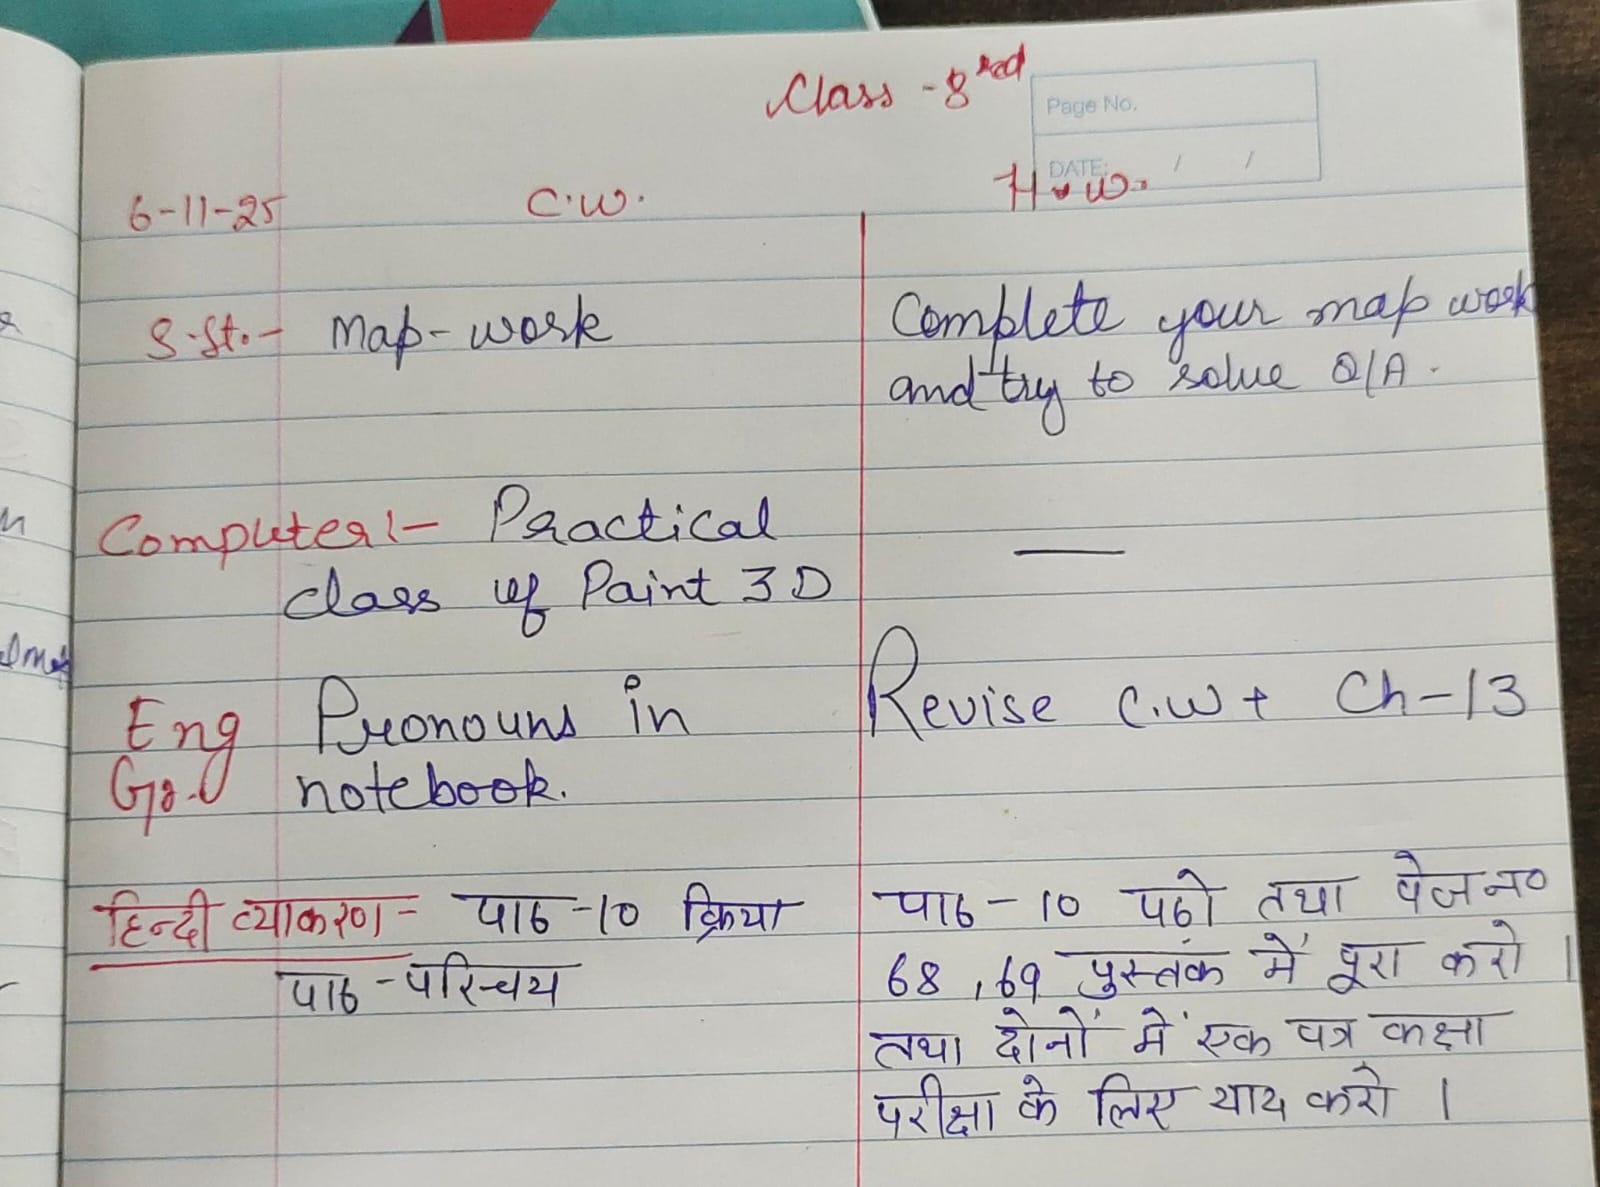 Class - 8 red
Page No.
DATE: / /
6-11-25 C.W. H.W.
S.St.- Map-work Complete your map work
and try to solve Q/A.
Computer:- Practical —
class of Paint 3D
Eng Pronouns in Revise C.W + Ch-13
Gr. notebook.
हिन्दी व्याकरण- पाठ-10 क्रिया पाठ-10 पढो तथा पेज न०
पाठ-परिचय 68, 69 पुस्तक में पूरा करो ।
तथा दोनों में एक पत्र कक्षा
परीक्षा के लिए याद करो ।